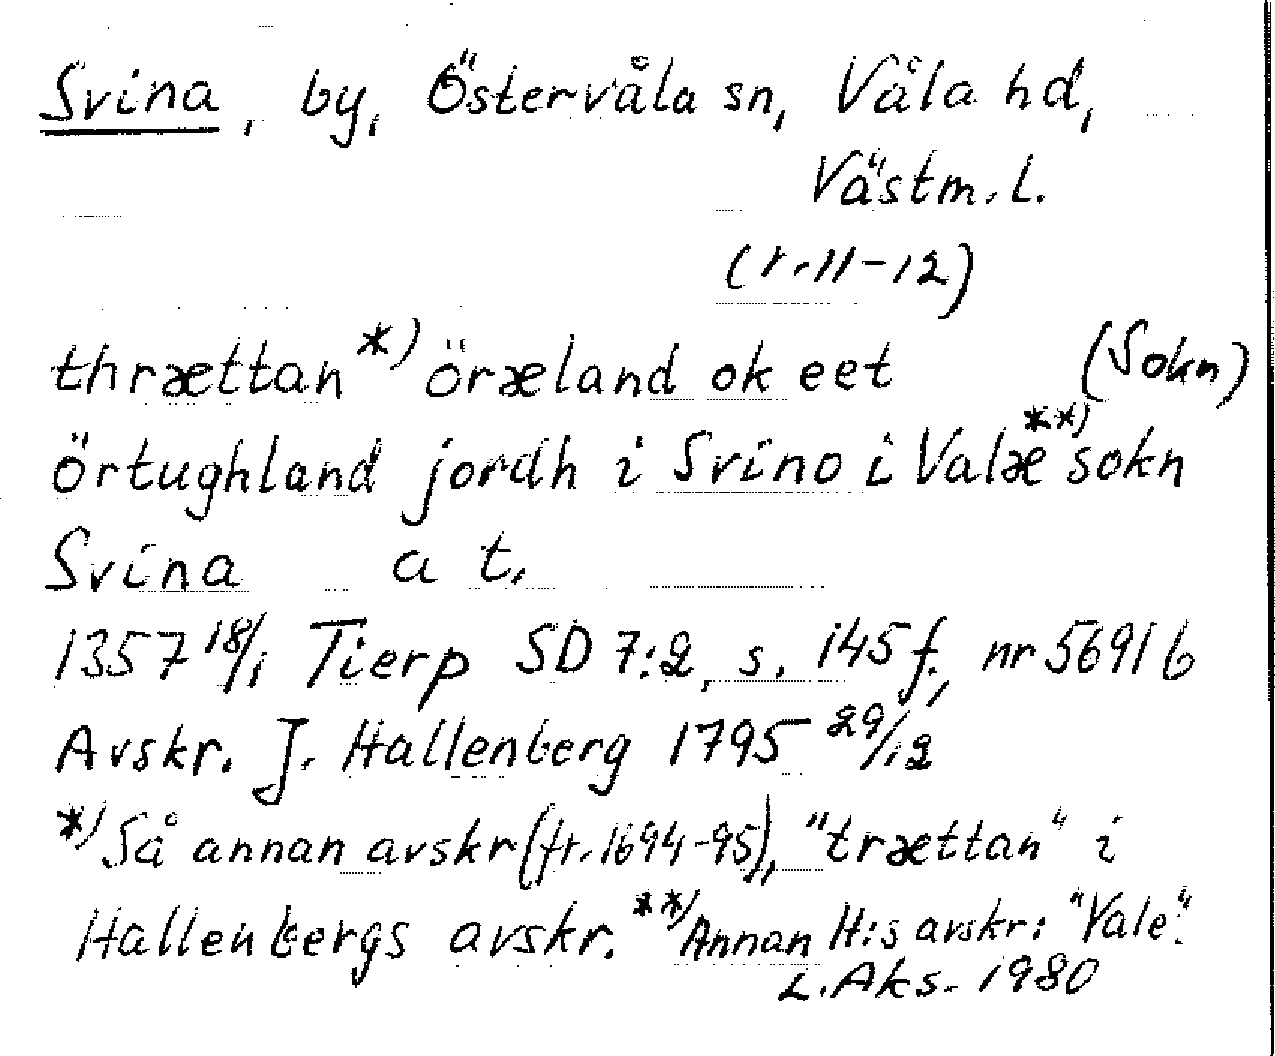 Svina, by, Östervåla sn, Våla hd,
Västm. l.
(r. 11-12)
thrættan*) öræland ok eet (Sokn)
örtughland jordh i Svino i Valæ**) sokn
Svina a t.
1357 18/1 Tierp SD 7:2, s. 145 f., nr 5691 b
Avskr. J. Hallenberg 1795 29/12
*) Så annan avskr (fr. 1694-95), "trættan" i
Hallenbergs avskr. **) Annan H:s avskr: "Vale".
L. Aks. 1980